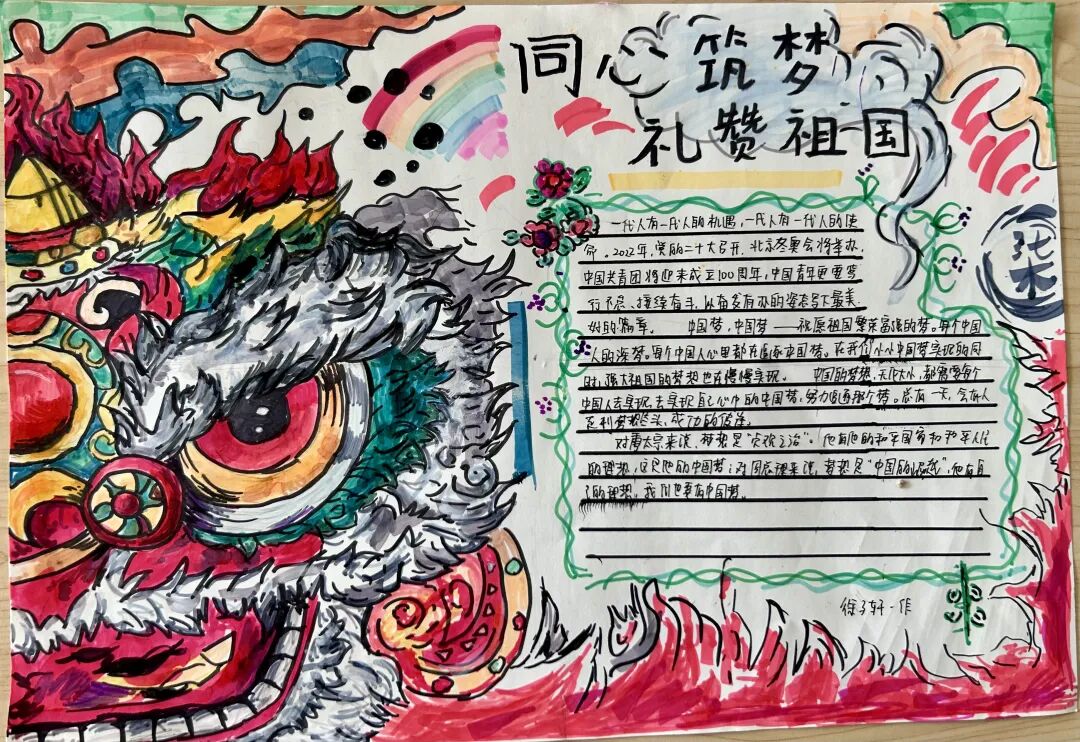 同心筑梦
礼赞祖国
一代人有一代人的机遇,一代人有一代人的使
命。2022年,党的二十大召开,北京冬奥会将举办,
中国共青团将迎来成立100周年,中国青年更要笃
行不怠、接续奋斗,以奋发有为的姿态写下最美
好的篇章。 中国梦,中国梦——祝愿祖国繁荣富强的梦。每个中国
人的深梦。每个中国人心里都在追逐中国梦。在我们小小中国梦实现的同
时,强大祖国的梦想也在慢慢实现。 中国的梦想,无论大小,都需要每个
中国人去实现,去实现自己心中的中国梦,努力追逐那个梦。总有一天,会有人
到梦想尽头,成功的彼岸。
对唐太宗来说,梦想是“贞观之治”。他有他的和平国家和和平人民
的理想,这是他的中国梦;对周总理来说,梦想是“中国的崛起”,他有自
己的理想,我们也要有中国梦。
张
徐子轩-作